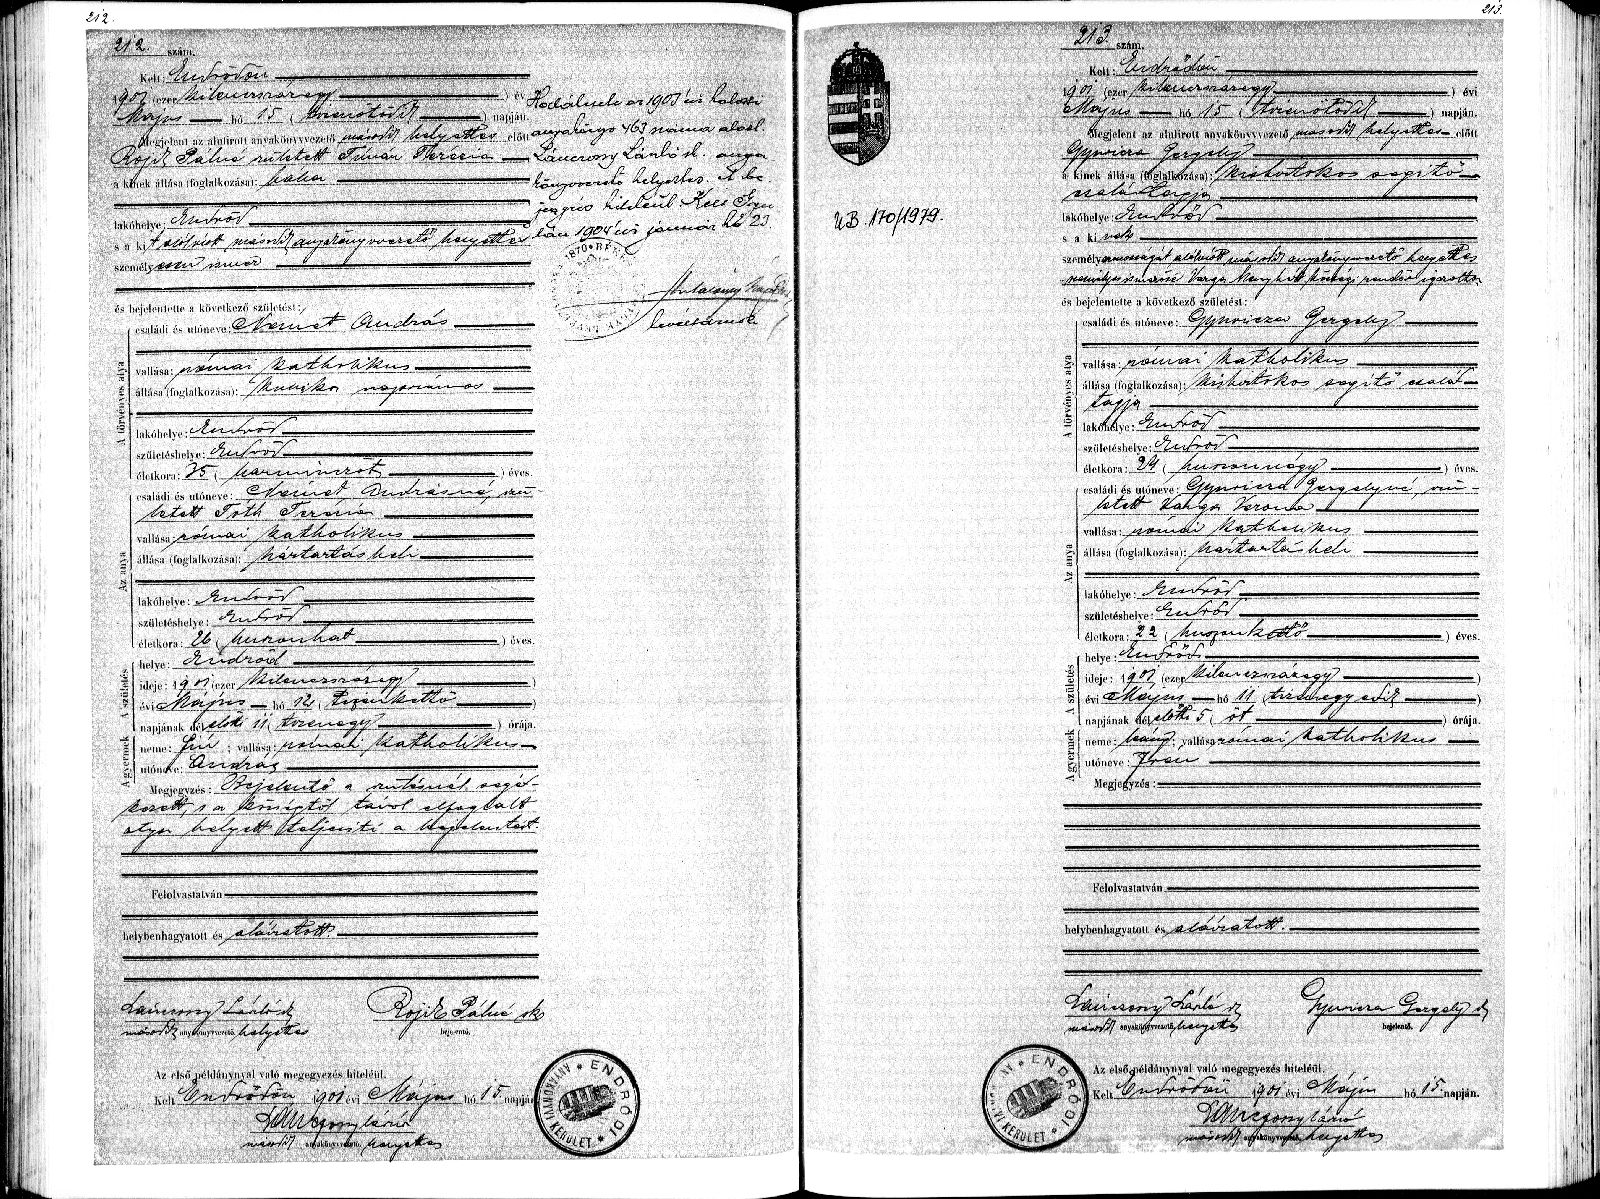 212.
212. szám.
Kelt: Endrődön
1901 (ezer kilencszázegy) évi
Május hó 15 (tizenötödik) napján.
Megjelent az alulirott anyakönyvvezető második helyettes előtt
Rojik Pálné született Timár Terézia
a kinek állása (foglalkozása): bába
lakóhelye: Endrőd
s a kit alólirott második anyakönyvvezető helyettes
személyesen ismer
és bejelentette a következő születést:
A törvényes atya
családi és utóneve: Német András
vallása: római katholikus
állása (foglalkozása): kubikos napszámos
lakóhelye: Endrőd
születéshelye: Endrőd
életkora: 35 (harminczöt) éves.
Az anya
családi és utóneve: Német Andrásné, szü-
letett Tóth Terézia
vallása: római katholikus
állása (foglalkozása): háztartásbeli
lakóhelye: Endrőd
születéshelye: Endrőd
életkora: 26 (huszonhat) éves.
A születés
helye: Endrőd
ideje: 1901 (ezer kilencszázegy)
évi Május hó 12 (tizenkettő)
napjának dél előtt 11 (tizenegy) órája.
A gyermek
neme: fiú; vallása: római katholikus
utóneve: András
Megjegyzés: Bejelentő a szülésnél segéd-
kezett, s a községtől távol elfoglalt
atya helyett teljesiti a bejelentést.
Felolvastatván
helybenhagyatott és aláiratott.
Lánczony László sk Rojik Pálné sk
második anyakönyvvezető helyettes bejelentő.
Az első példánynyal való megegyezés hiteléül.
Kelt Endrődön 1901 évi Május hó 15. napján
Lánczony László
második anyakönyvvezető helyettes
ENDRŐDI ANYAKÖNYVI KERÜLET
Haláleset az 1903 évi halotti
anyakönyv 463 száma alatt.
Lánczony László sk. anya
könyvvezető helyettes. A be
jegyzés hiteléül
1904 évi január hó 23
levéltárnok
213.
213. szám.
Kelt: Endrődön
1901 (ezer kilencszázegy) évi
Május hó 15 (tizenötödik) napján.
Megjelent az alulirott anyakönyvvezető második helyettes előtt
Gyuricza Gergely
a kinek állása (foglalkozása): kisbirtokos segitő
családtagja
lakóhelye: Endrőd
s a kinek
személyazonosságát alólirott második anyakönyvvezető helyettes
személyes ismerőse Varga községi rendőr igazolta
és bejelentette a következő születést:
A törvényes atya
családi és utóneve: Gyuricza Gergely
vallása: római katholikus
állása (foglalkozása): kisbirtokos segitő család-
tagja
lakóhelye: Endrőd
születéshelye: Endrőd
életkora: 24 (huszonnégy) éves.
Az anya
családi és utóneve: Gyuricza Gergelyné, szü-
letett Varga Verona
vallása: római katholikus
állása (foglalkozása): háztartásbeli
lakóhelye: Endrőd
születéshelye: Endrőd
életkora: 22 (huszonkettő) éves.
A születés
helye: Endrőd
ideje: 1901 (ezer kilencszázegy)
évi Május hó 11 (tizenegyedik)
napjának dél előtt 5 (öt) órája.
A gyermek
neme: leány; vallása: római katholikus
utóneve: Irén
Megjegyzés:
Felolvastatván
helybenhagyatott és aláiratott.
Lánczony László sk Gyuricza Gergely sk
második anyakönyvvezető helyettes bejelentő.
Az első példánynyal való megegyezés hiteléül.
Kelt Endrődön 1901 évi Május hó 15 napján.
Lánczony László
második anyakönyvvezető helyettes
ENDRŐDI ANYAKÖNYVI KERÜLET
UB. 170/1979.